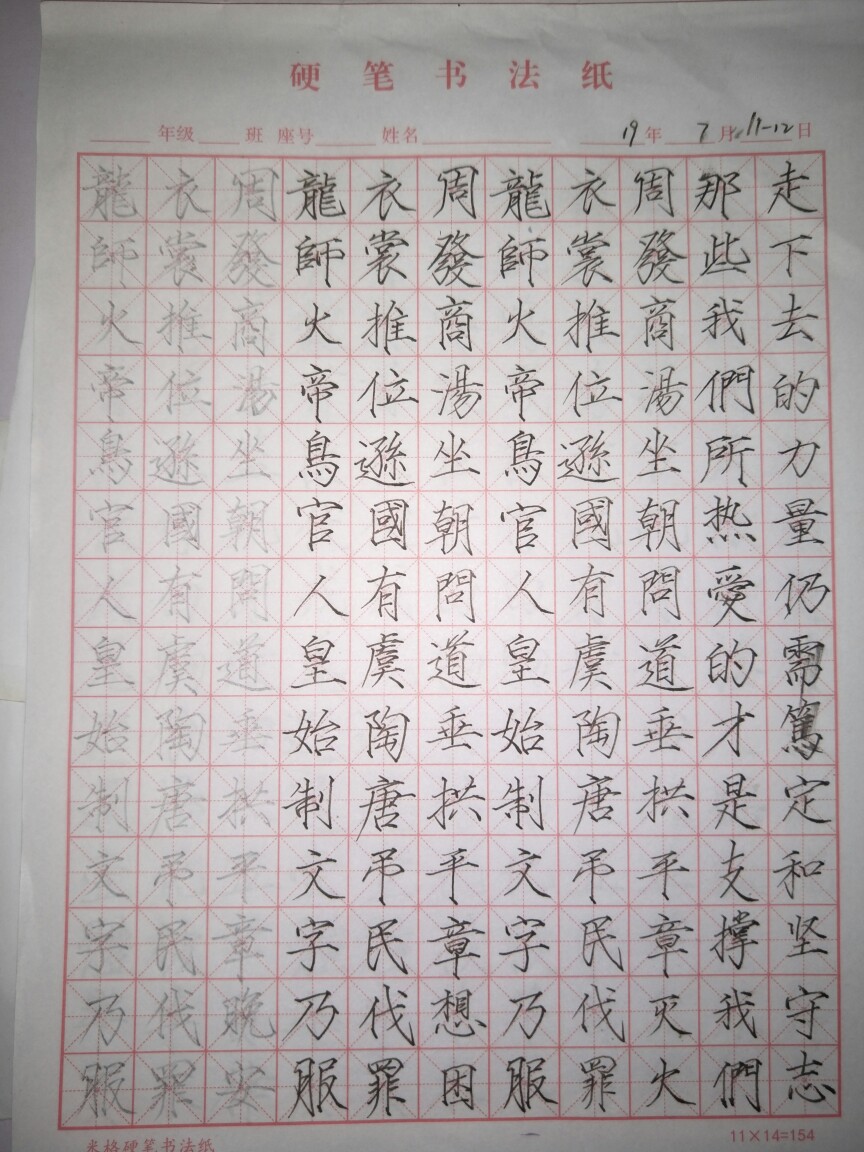 硬笔书法纸
年级 班 座号 姓名 19年 7月11-12日
龍師火帝鳥官人皇始制文字乃服
衣裳推位遜國有虞陶唐吊民伐罪
周發商湯坐朝問道垂拱平章晚安
龍師火帝鳥官人皇始制文字乃服
衣裳推位遜國有虞陶唐吊民伐罪
周發商湯坐朝問道垂拱平章想困
龍師火帝鳥官人皇始制文字乃服
衣裳推位遜國有虞陶唐吊民伐罪
周發商湯坐朝問道垂拱平章灭火
那些我們所热愛的才是支撑我們
走下去的力量仍需篤定和坚守志
米格硬笔书法纸
11×14=154